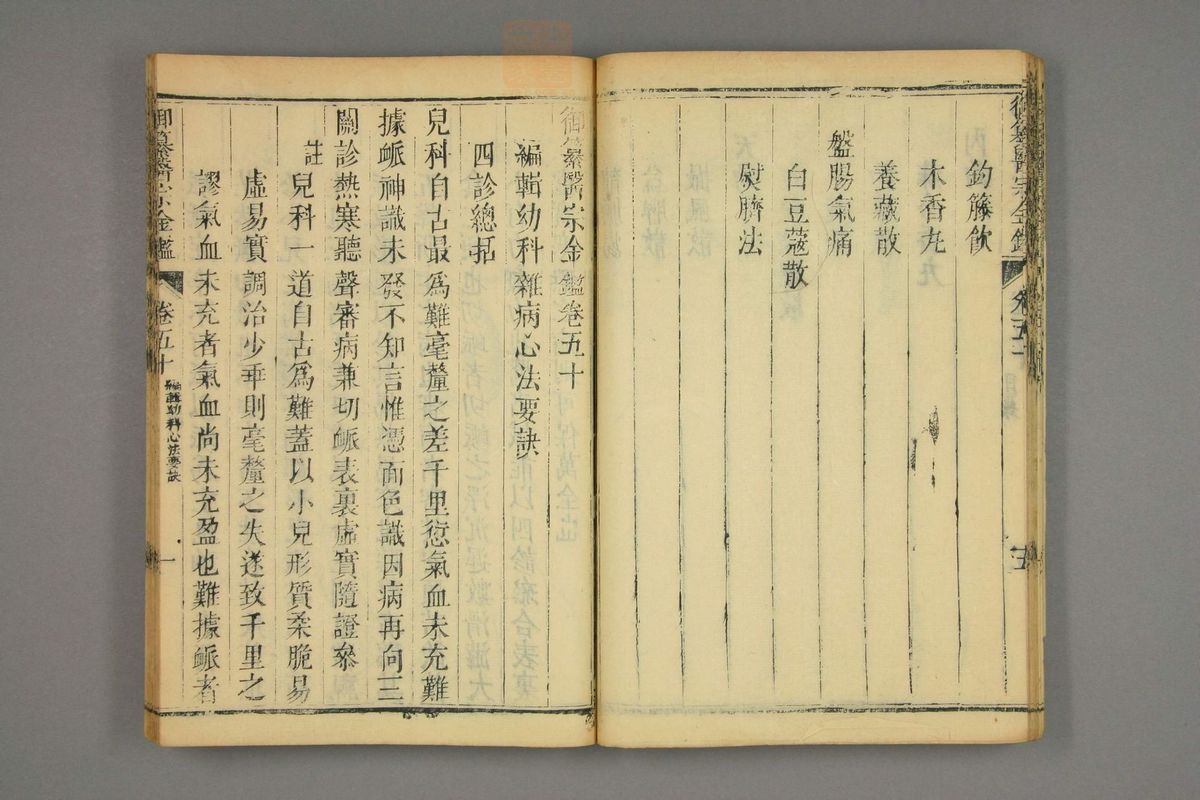 御纂醫宗金鑑
卷五十
五
鈎籐飲
木香丸
養藏散
盤腸氣痛
白豆蔻散
熨臍法
御纂醫宗金鑑卷五十
編輯幼科雜病心法要訣
四診總括
兒科自古最爲難毫釐之差千里愆氣血未充難
據脈神識未發不知言惟憑面色識因病再向三
關診熱寒聽聲審病兼切脈表裏虛實隨證參
註 兒科一道自古爲難蓋以小兒形質柔脆易
虛易實調治少乖則毫釐之失遂致千里之
謬氣血未充者氣血尚未充盈也難據脈者
御纂醫宗金鑑
卷五十
編輯幼科心法要訣
一